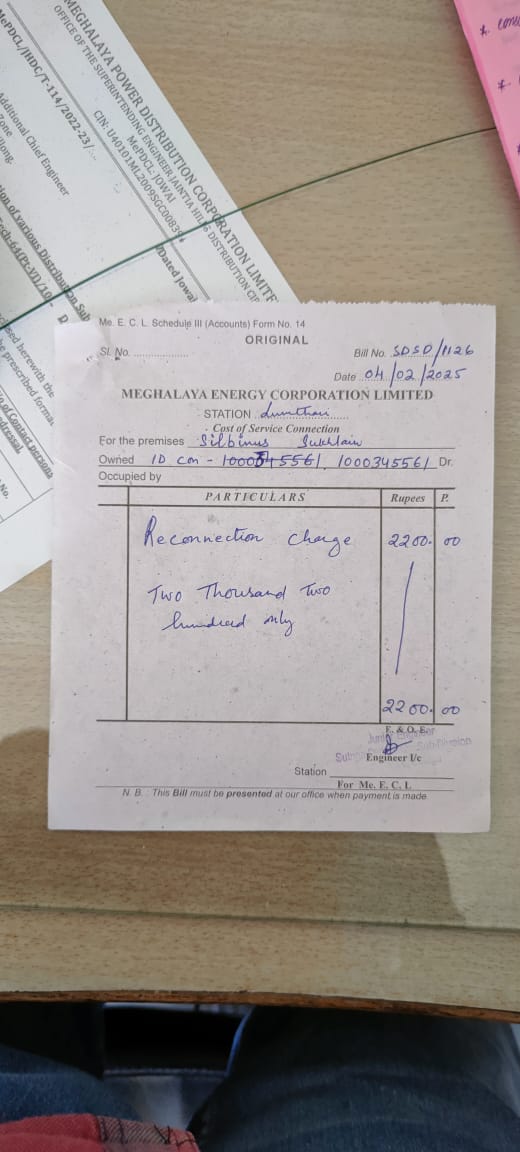 MEGHALAYA POWER DISTRIBUTION CORPORATION LIMITE
OFFICE OF THE SUPERINTENDING ENGINEER, JAINTIA HILLS DISTRIBUTION CIR
CIN: U40101ML2009SGC00839
MePDCL: JOWAI
MePDCL/JHDC/T-114/2022-23/...
Dated Jowai
Additional Chief Engineer
Zone
ion of various Distribution Sub
sed herewith the
e prescribed format
of Contact persons
dressal
No.
Me. E. C. L. Schedule III (Accounts) Form No. 14
ORIGINAL
Sl. No. ..................
Bill No. SDSD/1126
Date 04/02/2025
MEGHALAYA ENERGY CORPORATION LIMITED
STATION
Cost of Service Connection
For the premises Silbinus Sukhlain
Owned ID Con - 1000345561 1000345561 Dr.
Occupied by
PARTICULARS Rupees P.
Reconnection Charge 2200. 00
Two Thousand Two
hundred only
2200. 00
E. & O. E.
Junior Engineer
Sub-Division
Engineer I/c
Station
For Me. E. C. L
N. B. . This Bill must be presented at our office when payment is made